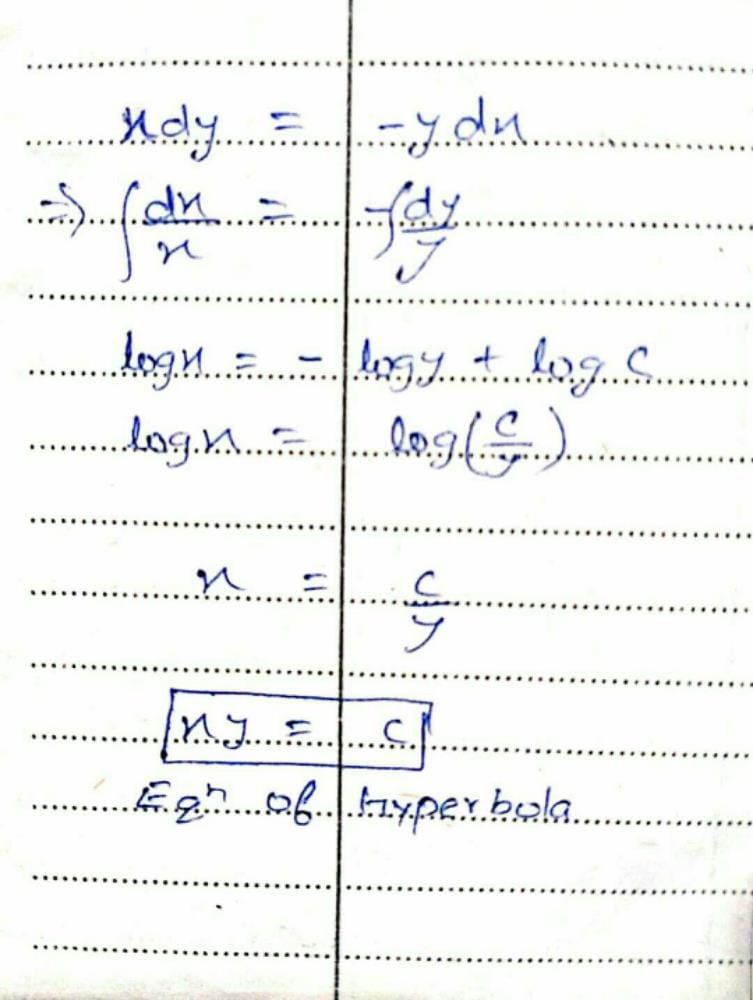 xdy = -ydx
⇒ ∫dx/x = -∫dy/y
logx = - logy + log c
logx = log(c/y)
x = c/y
xy = c
Eqⁿ of Hyperbola